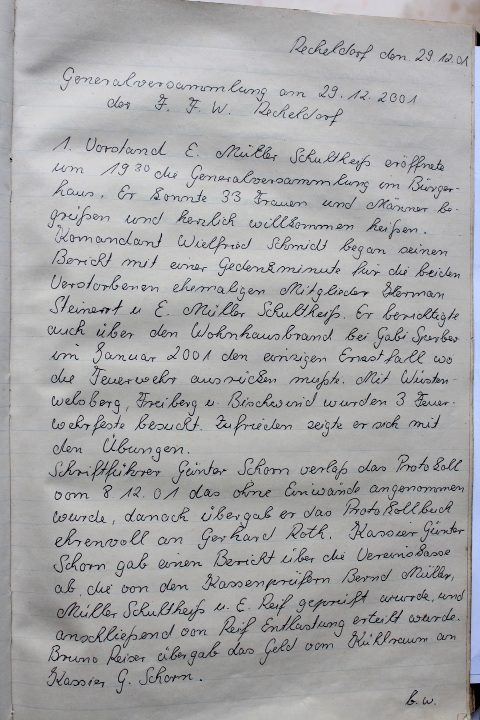 Recheldorf den 29.12.01
Generalversammlung am 29.12.2001
der F. F. W. Recheldorf
1. Vorstand E. Müller Schultheiß eröffnete
um 19³⁰ die Generalversammlung im Bürger-
haus. Er konnte 33 Frauen und Männer be-
grüßen und herzlich willkommen heißen.
Komandant Wielfried Schmidt began seinen
Bericht mit einer Gedenkminute für die beiden
Verstorbenen ehemaligen Mitglieder Herman
Steinert u E. Müller Schultheiß. Er berichtigte
auch über den Wohnhausbrand bei Gabi Sperber
im Januar 2001 den einzigen Ernstfall wo
die Feuerwehr ausrücken mußte. Mit Wüsten-
welsberg, Freiberg u. Bischwind wurden 3 Feuer-
wehrfeste besucht. Zufrieden zeigte er sich mit
den Übungen.
Schriftführer Günter Schorn verlaß das Protokoll
vom 8.12.01 das ohne Einwände angenommen
wurde, danach übergab er das Protokollbuch
ehrenvoll an Gerhard Roth. Kassier Günter
Schorn gab einen Bericht über die Vereinskasse
ab, die von den Kassenprüfern Bernd Müller,
Müller Schultheiß u. E. Reif geprüft wurde, und
anschließend von Reif Entlastung erteilt wurde.
Bruno Reiser übergab das Geld vom Kühlraum an
Kassier G. Schorn.
b.w.